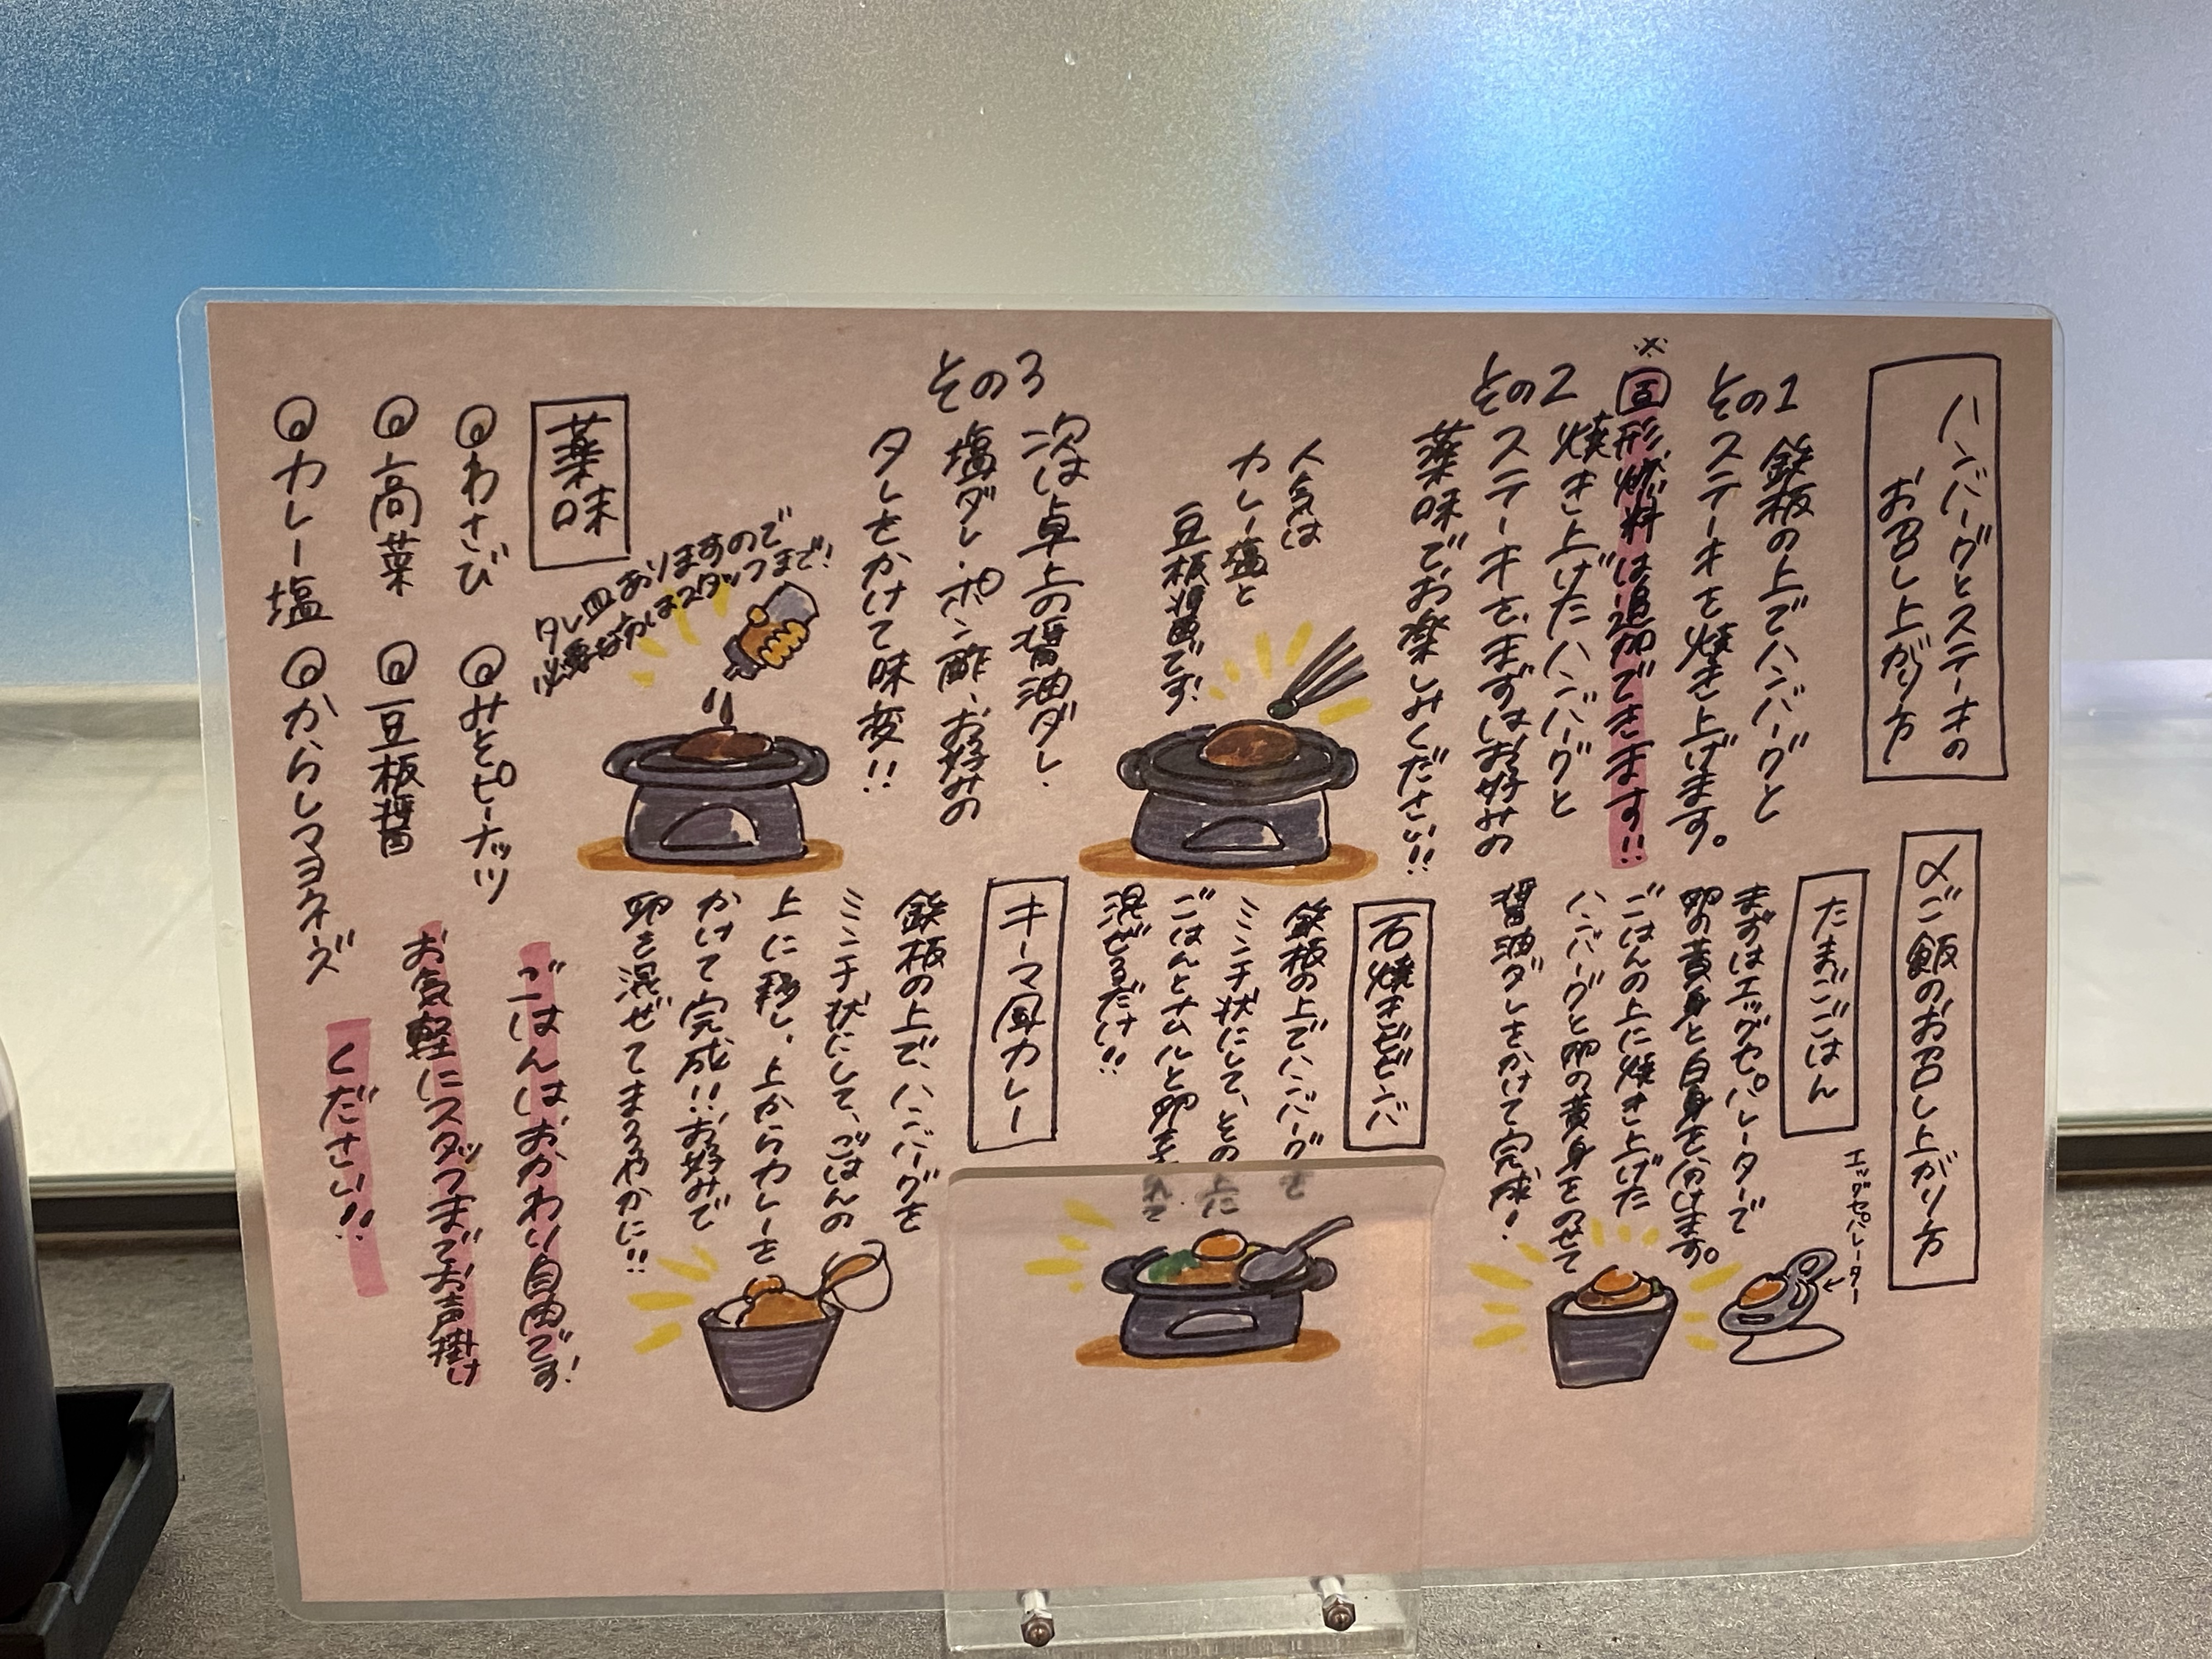 ハンバーグとステーキの
お召し上がり方
その1
鉄板の上でハンバーグと
ステーキを焼き上げます。
※固形燃料は追加できます!!
その2
焼き上げたハンバーグと
ステーキを、まずはお好みの
薬味で、お楽しみください!!
人気は
カレー塩と
豆板醤です!
その3
次は卓上の醤油ダレ・
塩ダレ・ポン酢、お好みの
タレをかけて味変!!
タレ皿ありますので
必要な方はスタッフまで!
薬味
◎わさび
◎みそピーナッツ
◎高菜
◎豆板醤
◎カレー塩
◎からしマヨネーズ
〆ご飯のお召し上がり方
たまごごはん
エッグセパレーター
まずはエッグセパレーターで
卵の黄身と白身を分けます。
ごはんの上に焼き上げた
ハンバーグと卵の黄身をのせて
醤油ダレをかけて完成!
石焼きビビンバ
鉄板の上でハンバーグを
ミンチ状にして、その上に
ごはんとナムルと卵を
混ぜるだけ!!
キーマ風カレー
鉄板の上で、ハンバーグを
ミンチ状にして、ごはんの
上に移し、上からカレーを
かけて完成!!お好みで
卵を混ぜてまろやかに!!
ごはんはおかわり自由です!
お気軽にスタッフまでお声掛け
ください!!